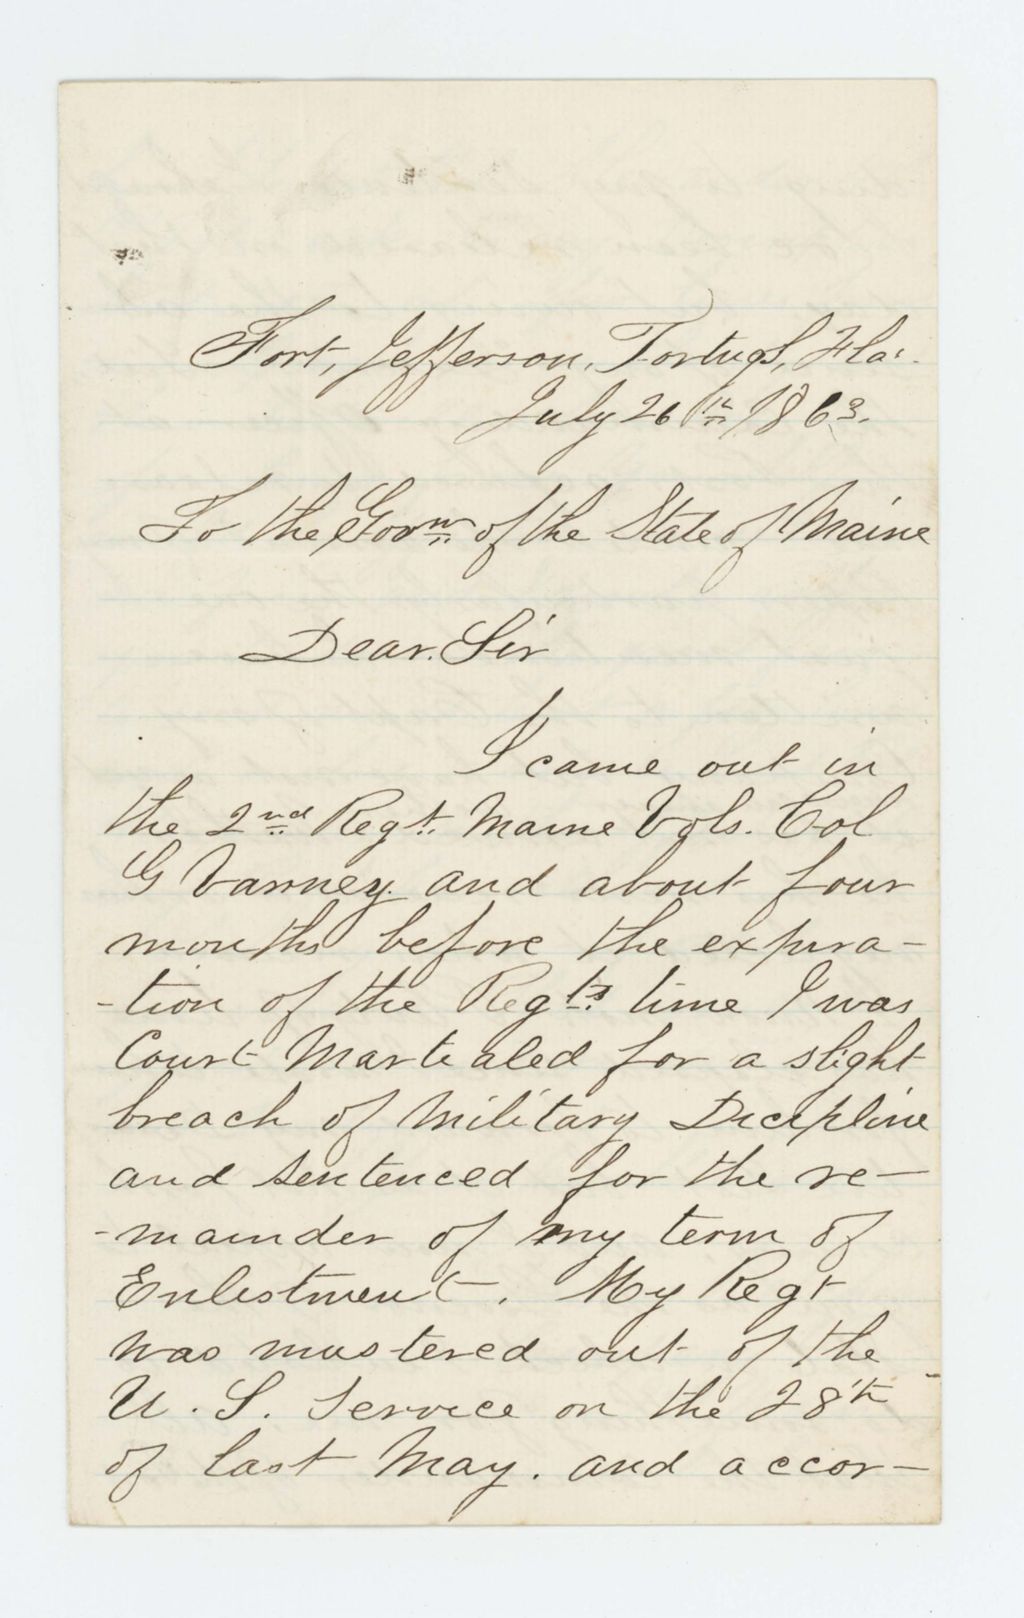 Fort, Jefferson, Tortugs, Fla.
July 26th 1863.
To the Govnr of the State of Maine
Dear. Sir
I came out in
the 2nd Regt. Maine Vols. Col
G Varney. and about four
months before the expira-
-tion of the Regts. time I was
Court Martialed for a slight
breach of Military Dicipline
and sentenced for the re-
-mainder of my term of
Enlistment. My Regt
was mustered out of the
U. S. Service on the 28th
of last May. and accor-